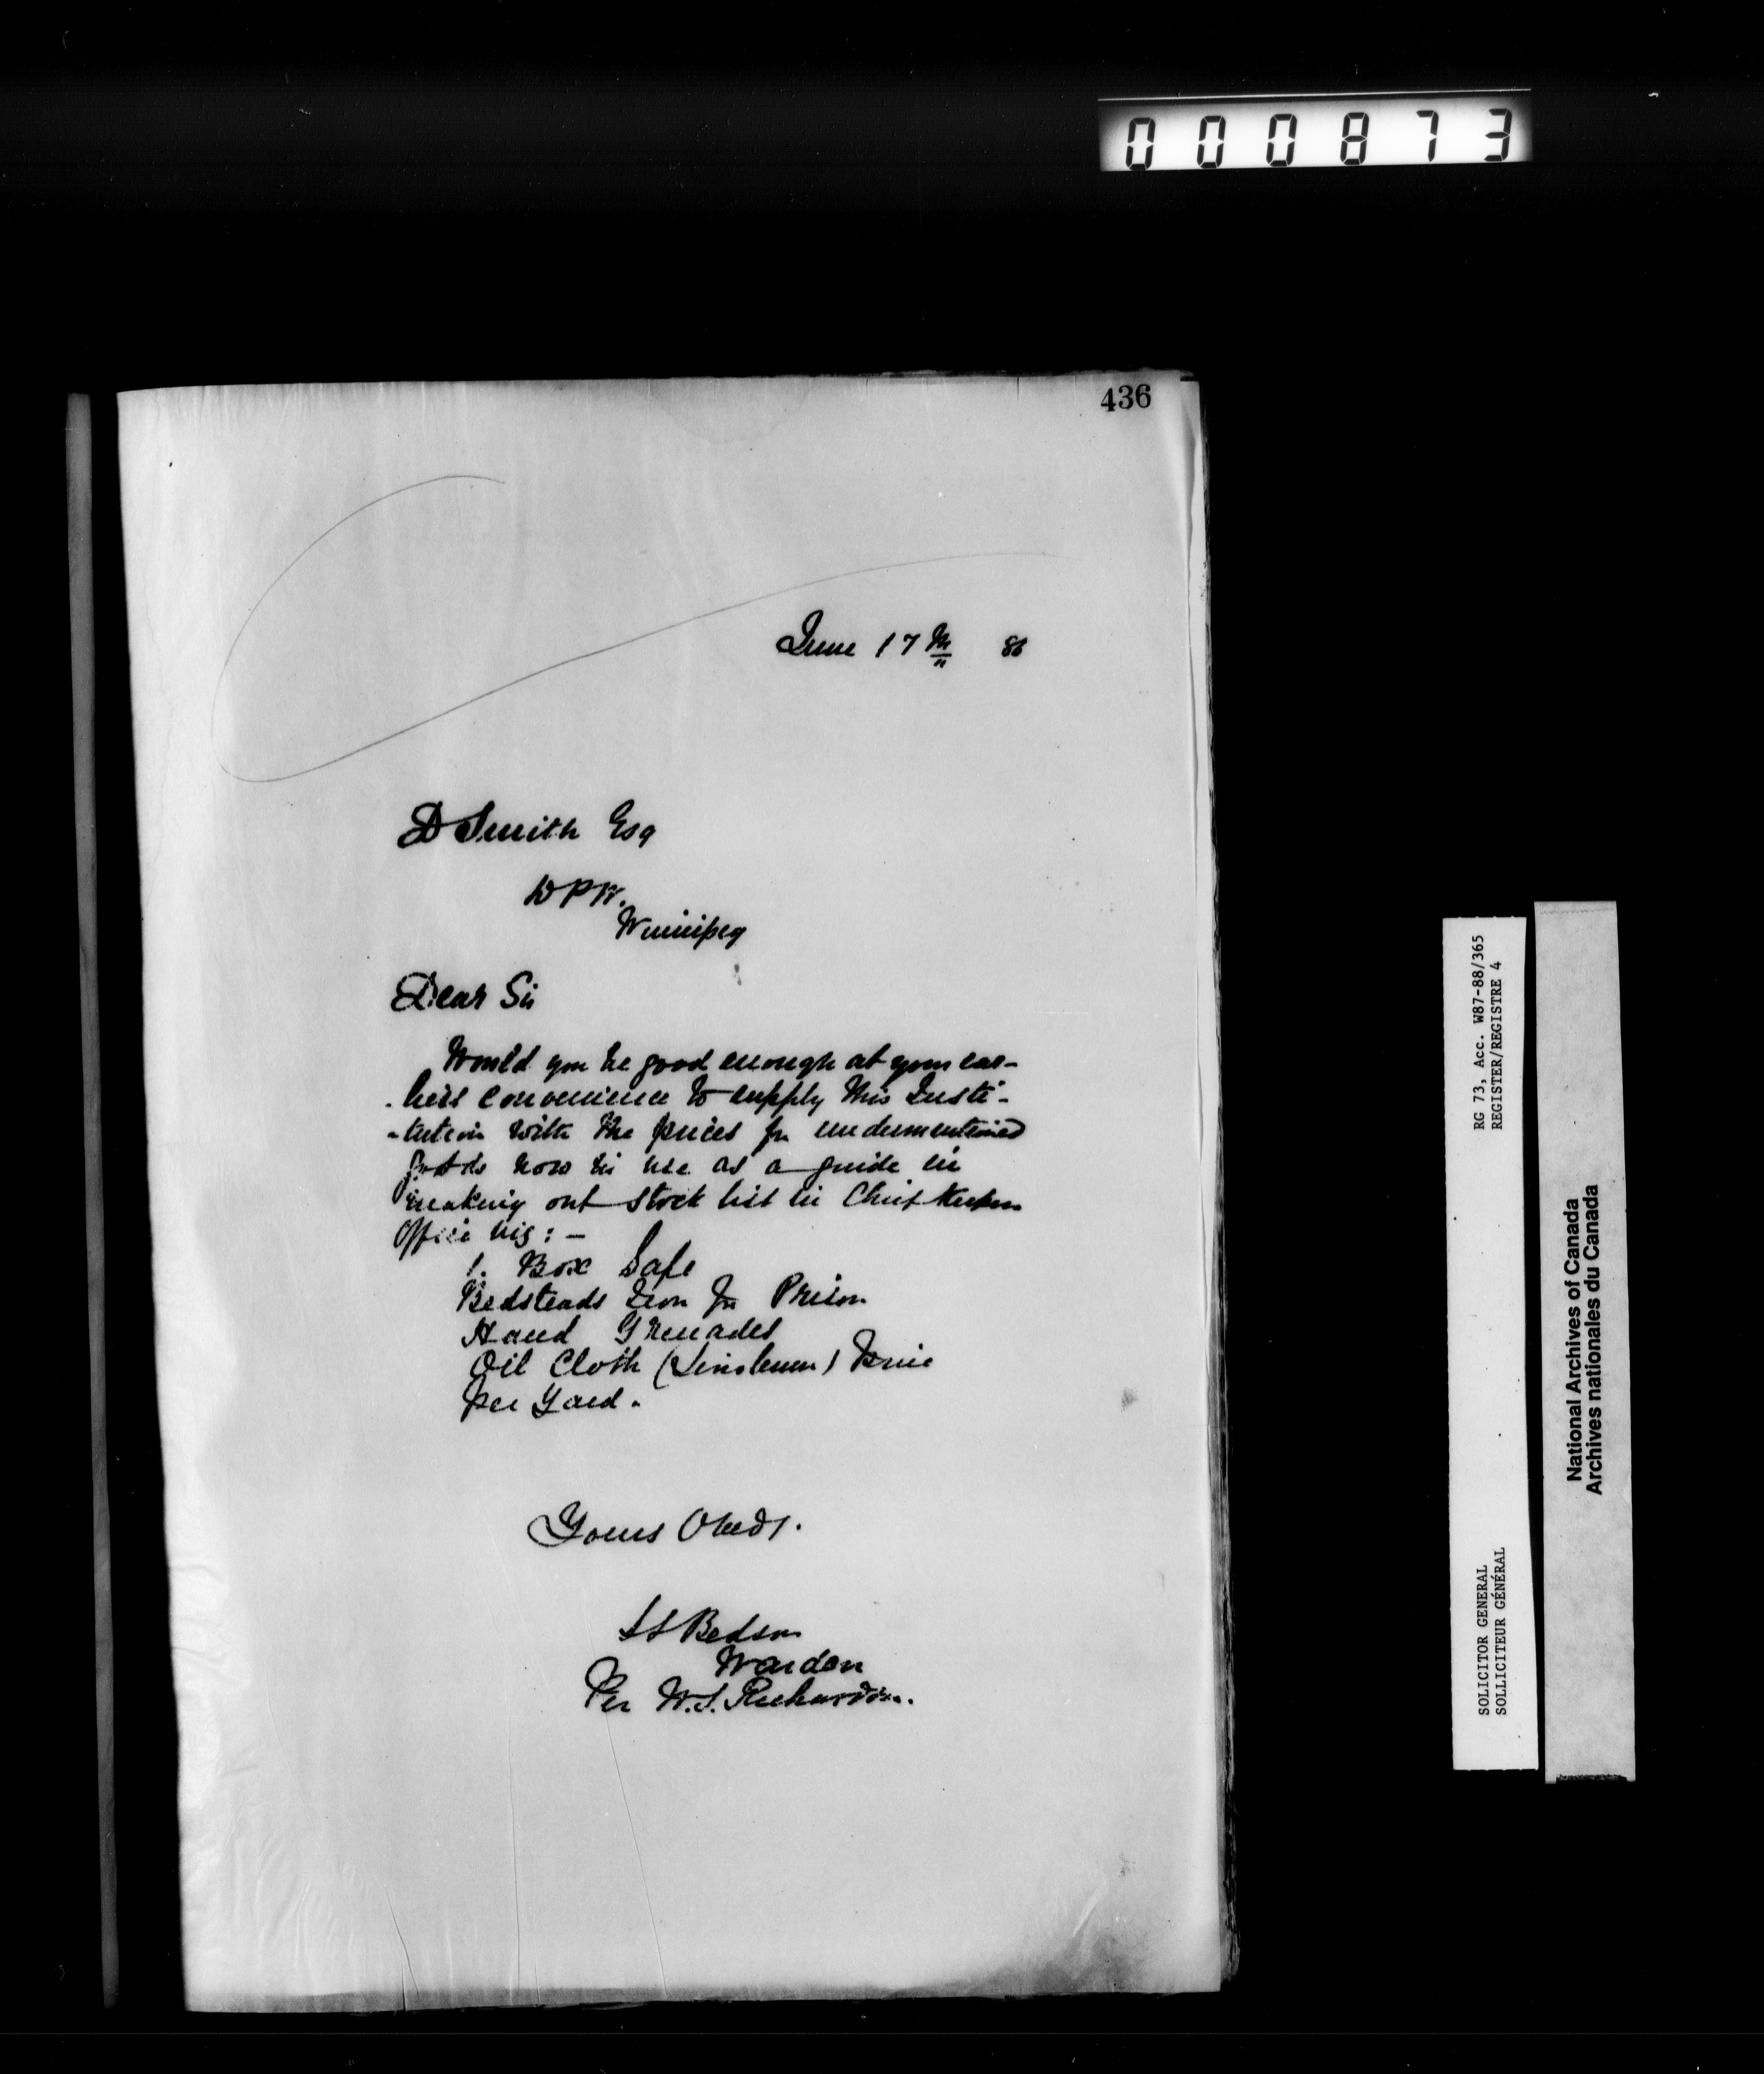 000873
436
June 17th 86
D Smith Esq
D P W.
Winnipeg
Dear Sir
Would you be good enough at your ear-
-liest convenience to supply this Insti-
-tution with the prices for undermentioned
goods now in use as a guide in
making out stock list in Chief Keepers
Office viz: -
1. Box Safe
Bedsteads Iron for Prison
Hand Grenades
Oil Cloth (Linoleum) Price
per Yard.
Yours Obedt.
S L Bedson
Warden
Per W. S. Richardson.
RG 73, Acc. W87-88/365
REGISTER/REGISTRE 4
SOLICITOR GENERAL
SOLLICITEUR GÉNÉRAL
National Archives of Canada
Archives nationales du Canada